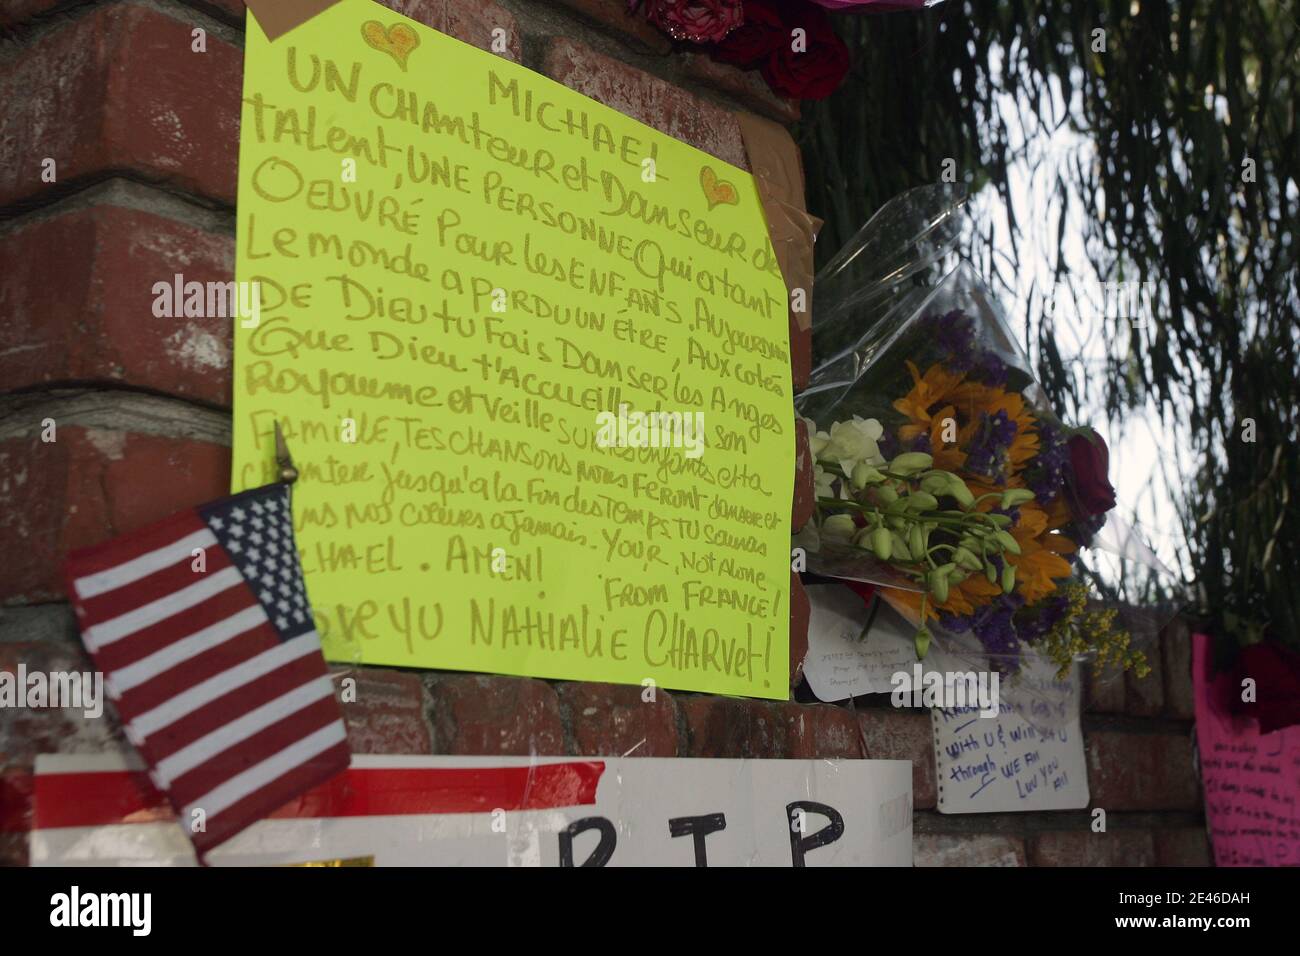 MICHAEL
UN CHANTEUR et DANSEUR de
TALENT, UNE PERSONNE QUI A TANT
OEUVRÉ POUR LES ENFANTS. AUJOURD'HUI
LE MONDE A PERDU UN ÊTRE, AUX COTÉS
DE DIEU TU FAIS DANSER LES ANGES
QUE DIEU T'ACCUEILLE dans SON
ROYAUME et VEILLE SUR tes enfants et ta
FAMILLE, TES CHANSONS NOUS FERONT danser et
chanter jusqu'a LA FON des TEMPS. TU SAURAS
NOS COEURS A JAMAIS. YOUR, NOT ALONE
AMEN! FROM FRANCE!
YU NATHALIE CHARVET!
RIP
KNOW GOD is
WITH U & Will get U
through WE Are
LUV YOU
All
alamy
Image ID: 2E46DAH
www.alamy.com